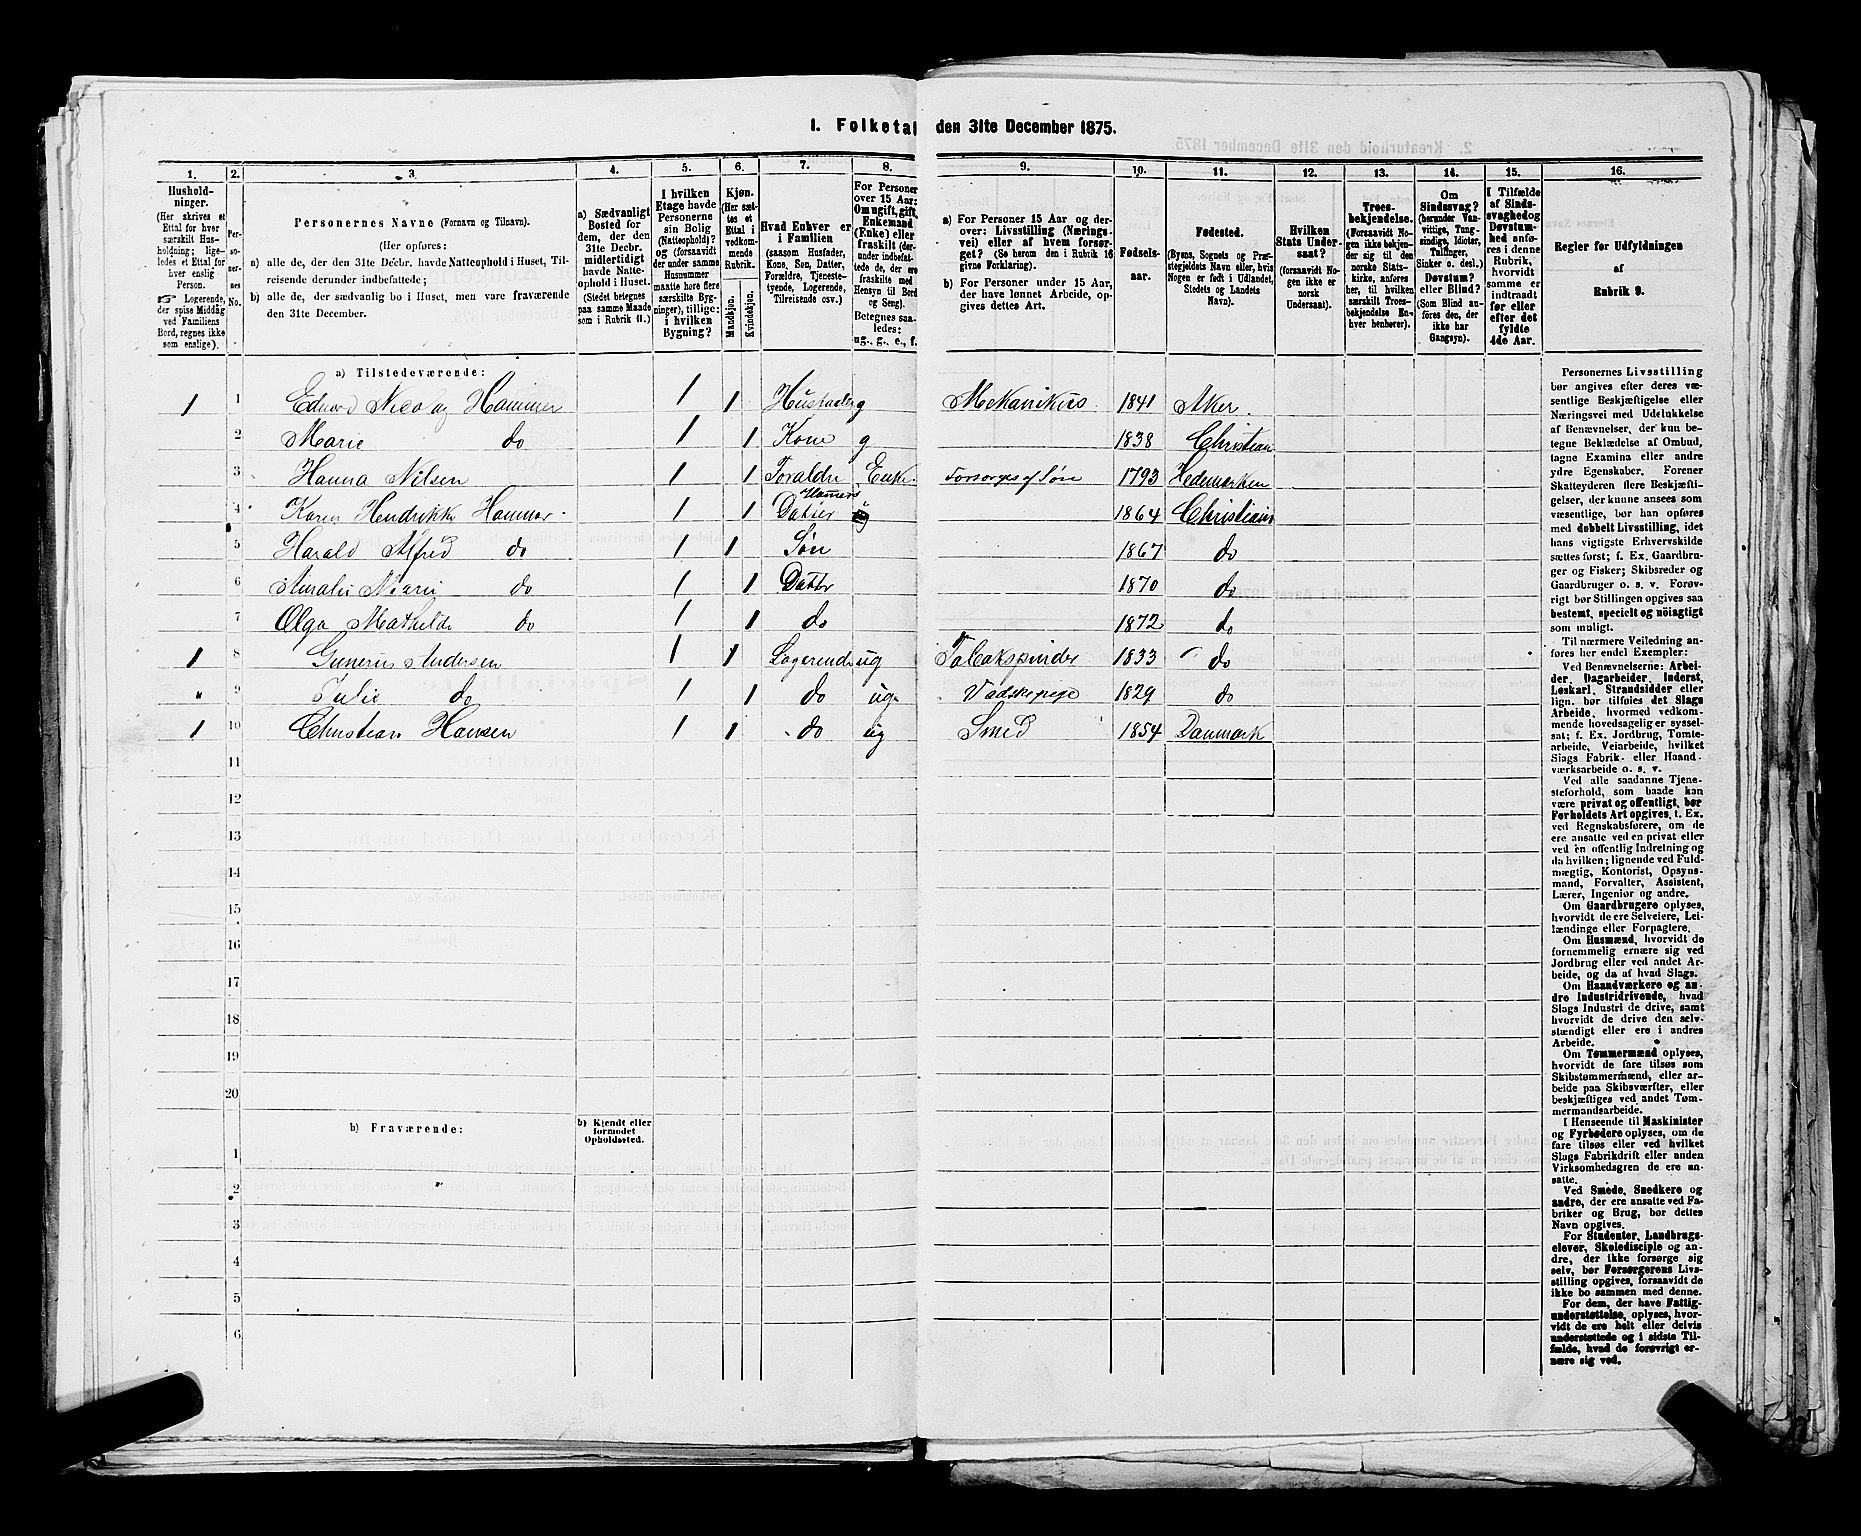 I. Folketal den 31te December 1875.
1. 2. 3. 4. 5. 6. 7. 8. 9. 10. 11. 12. 13. 14. 15. 16.
Husholdninger.
(Her skrives et Ettal for hver særskilt Husholdning; ligeledes et Ettal for hver enslig Person.
☞ Logerende, der spise Middag ved Familiens Bord, regnes ikke som enslige).
Personernes No.
Personernes Navne (Fornavn og Tilnavn).
(Her opføres:
a) alle de, der den 31te Decbr. havde Natteophold i Huset, Tilreisende derunder indbefattede;
b) alle de, der sædvanlig bo i Huset, men vare fraværende den 31te December.
a) Sædvanligt Bosted for dem, der den 31te Decbr. midlertidigt havde Natteophold i Huset.
(Stedet betegnes paa samme Maade som i Rubrik 11.)
I hvilken Etage havde Personerne sin Bolig (Natteophold)? og (forsaavidt der under samme Husnummer maatte høre flere særskilte Bygninger), tillige: i hvilken Bygning?
Kjøn. (Her sættes et Ettal i vedkommende Rubrik.
Mandkjøn. Kvindekjøn.
Hvad Enhver er i Familien
(saasom Husfader, Kone, Søn, Datter, Forældre, Tjenestetyende, Logerende, Tilreisende osv.)
For Personer over 15 Aar: Om ugift, gift, Enkemand (Enke) eller fraskilt (derunder indbefattede de, der ere fraskilte med Hensyn til Bord og Seng).
Betegnes saaledes: ug., g., e., f.
a) For Personer 15 Aar og derover: Livsstilling (Næringsvei) eller af hvem forsørget? (Se herom den i Rubrik 16 givne Forklaring).
b) For Personer under 15 Aar, der have lønnet Arbeide, opgives dettes Art.
Fødselsaar.
Fødested.
(Byens, Sognets og Præstegjeldets Navn eller, hvis Nogen er født i Udlandet, Stedets og Landets Navn).
Hvilken Stats Undersaat?
(forsaavidt Nogen ikke er norsk Undersaat).
Troesbekjendelse.
(Forsaavidt Nogen ikke bekjender sig til den norske Statskirke, anføres her, til hvilken særskilt Troesbekjendelse Enhver henhører).
Om Sindssvag? (herunder Vanvittige, Tungsindige, Idioter, Tullinger, Sinker o. desl.) Døvstum? eller Blind?
(Som Blind anføres den, der ikke har Gangsyn).
I Tilfælde af Sindssvaghed og Døvstumhed anføres i denne Rubrik, hvorvidt samme er indtraadt før eller efter det fyldte 4de Aar.
Regler for Udfyldningen af Rubrik 9.
a) Tilstedeværende:
1 1 Hammer 1 1 g Mekanikus 1841 Aker.
2 Marie do 1 1 Kone g 1838 Christian
3 Hanna Nilsen 1 1 Enke. Forsørges af Søn 1793 Hedemarken
4 Karen Hendrikke Hammer 1 1 Datter 1864 Christiania
5 Harald Alfred do 1 1 Søn 1867 do
6 Amalie Marie do 1 1 Datter 1870 do
7 Olga Mathilde do 1 1 do 1872 do
1 8 Gunerius Andersen 1 1 Logerende ug Tobakspinder 1833 do
" 9 Julie do 1 1 do ug 1829 do
1 10 Christian Hansen 1 1 do ug Smed 1854 Danmark
11
12
13
14
15
16
17
18
19
20
b) Fraværende:
b) Kjendt eller formodet Opholdssted.
1
2
3
4
5
6
Personernes Livsstilling
bør angives efter deres væ-
sentlige Beskjæftigelse eller
Næringsvei med Udelukkelse
af Benævnelser, der kun be-
tegne Beklædelse af Ombud,
tagne Examina eller andre
ydre Egenskaber. Forener
Skatteyderen flere Beskjæfti-
gelser, der kunne ansees som
væsentlige, bør han opføres
med dobbelt Livsstilling, idet
hans vigtigste Erhvervskilde
sættes først; f. Ex. Gaardbru-
ger og Fisker; Skibsreder og
Gaardbruger o. s. v. Forøv-
rigt bør Stillingen opgives saa
bestemt, specielt og nøiagtigt
som muligt.
Til nærmere Veiledning an-
føres her endel Exempler:
Ved Benævnelserne: Arbei-
der, Dagarbeider, Inderst,
Løskarl, Strandsidder eller
lign. bør tilføies det Slags
Arbeide, hvormed vedkom-
mende hovedsagelig er syssel-
sat; f. Ex. Jordbrug, Tomte-
arbeide, Veiarbeide, hvilket
Slags Fabrik- eller Haand-
værksarbeide o. s. v.
Ved alle saadanne Tjene-
steforhold, som baade kan
være privat og offentligt, bør
Forholdets Art opgives, t. Ex.
ved Regnskabsførere, om de
ere ansatte ved en privat eller
ved en offentlig Indretning og
da hvilken; lignende ved Fuld-
mægtig, Kontorist, Opsyns-
mand, Forvalter, Assistent,
Lærer, Ingeniør og andre.
Om Gaardbrugere oplyses,
hvorvidt de ere Selveiere, Lei-
lændinge eller Forpagtere.
Om Husmænd, hvorvidt de
fornemmelig ernære sig ved
Jordbrug eller ved andet Ar-
beide, og da af hvad Slags.
Om Haandværkere og an-
dre Industridrivende, hvad
Slags Industri de drive, samt
hvorvidt de drive den selv-
stændigt eller ere i andres
Arbeide.
Om Tømmermænd oplyses,
hvorvidt de fare tilsøs som
Skibstømmermænd, eller ar-
beide paa Skibsværfter, eller
beskjæftiges ved andet Tøm-
mermandsarbeide.
I Henseende til Maskinister
og Fyrbødere oplyses, om de
fare tilsøs eller ved hvilket
Slags Fabrikdrift eller anden
Virksomhedsgren de ere an-
satte.
Ved Smede, Snedkere og
andre, der ere ansatte ved Fa-
briker og Brug, bør dettes
Navn opgives.
For Studenter, Landbrugs-
elever, Skoledisciple og an-
dre, der ikke forsørge sig
selv, bør Forsørgerens Livs-
stilling opgives, forsaavidt de
ikke bo sammen med denne.
For dem, der have Fattig-
understøttelse, oplyses, hvor-
vidt de ere helt eller delvis
understøttede og i sidste Til-
fælde, hvad de forøvrigt er-
nære sig ved.